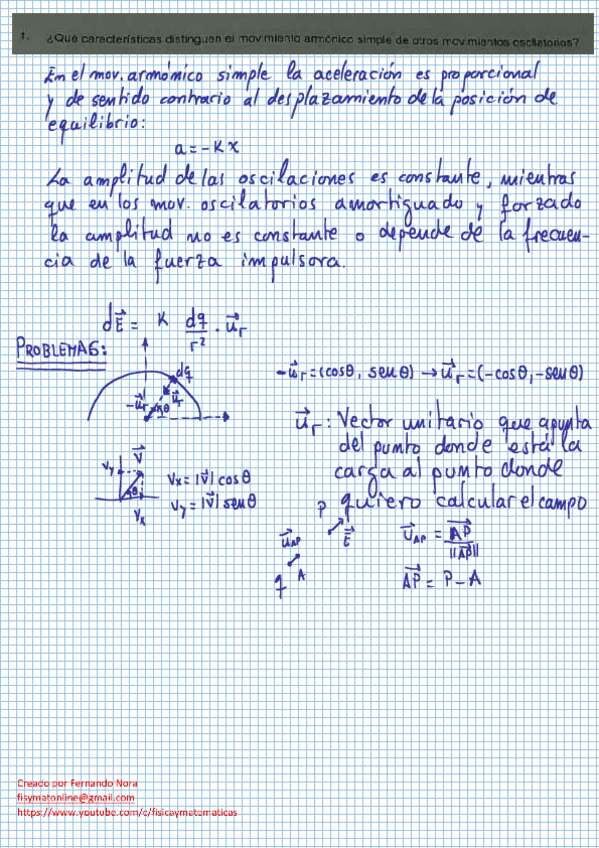 1. ¿Qué características distinguen el movimiento armónico simple de otros movimientos oscilatorios?
En el mov. armónico simple la aceleración es proporcional
y de sentido contrario al desplazamiento de la posición de
equilibrio:
a = -K x
La amplitud de las oscilaciones es constante, mientras
que en los mov. oscilatorios amortiguado y forzado
la amplitud no es constante o depende de la frecuen-
cia de la fuerza impulsora.
dE⃗ = K dq/r² · u⃗r
PROBLEMA 6:
dq
-u⃗r = (cosθ, senθ) → u⃗r = (-cosθ, -senθ)
-u⃗r θ u⃗r
u⃗r : Vector unitario que apunta
del punto donde está la
carga al punto donde
quiero calcular el campo
V⃗
Vy
θ
Vx
Vx = |V⃗| cosθ
Vy = |V⃗| senθ
P
E⃗
u⃗AP
q A
U⃗AP = AP⃗/||AP⃗||
AP⃗ = P - A
Creado por Fernando Nora
fisymatonline@gmail.com
https://www.youtube.com/c/fisicaymatematicas